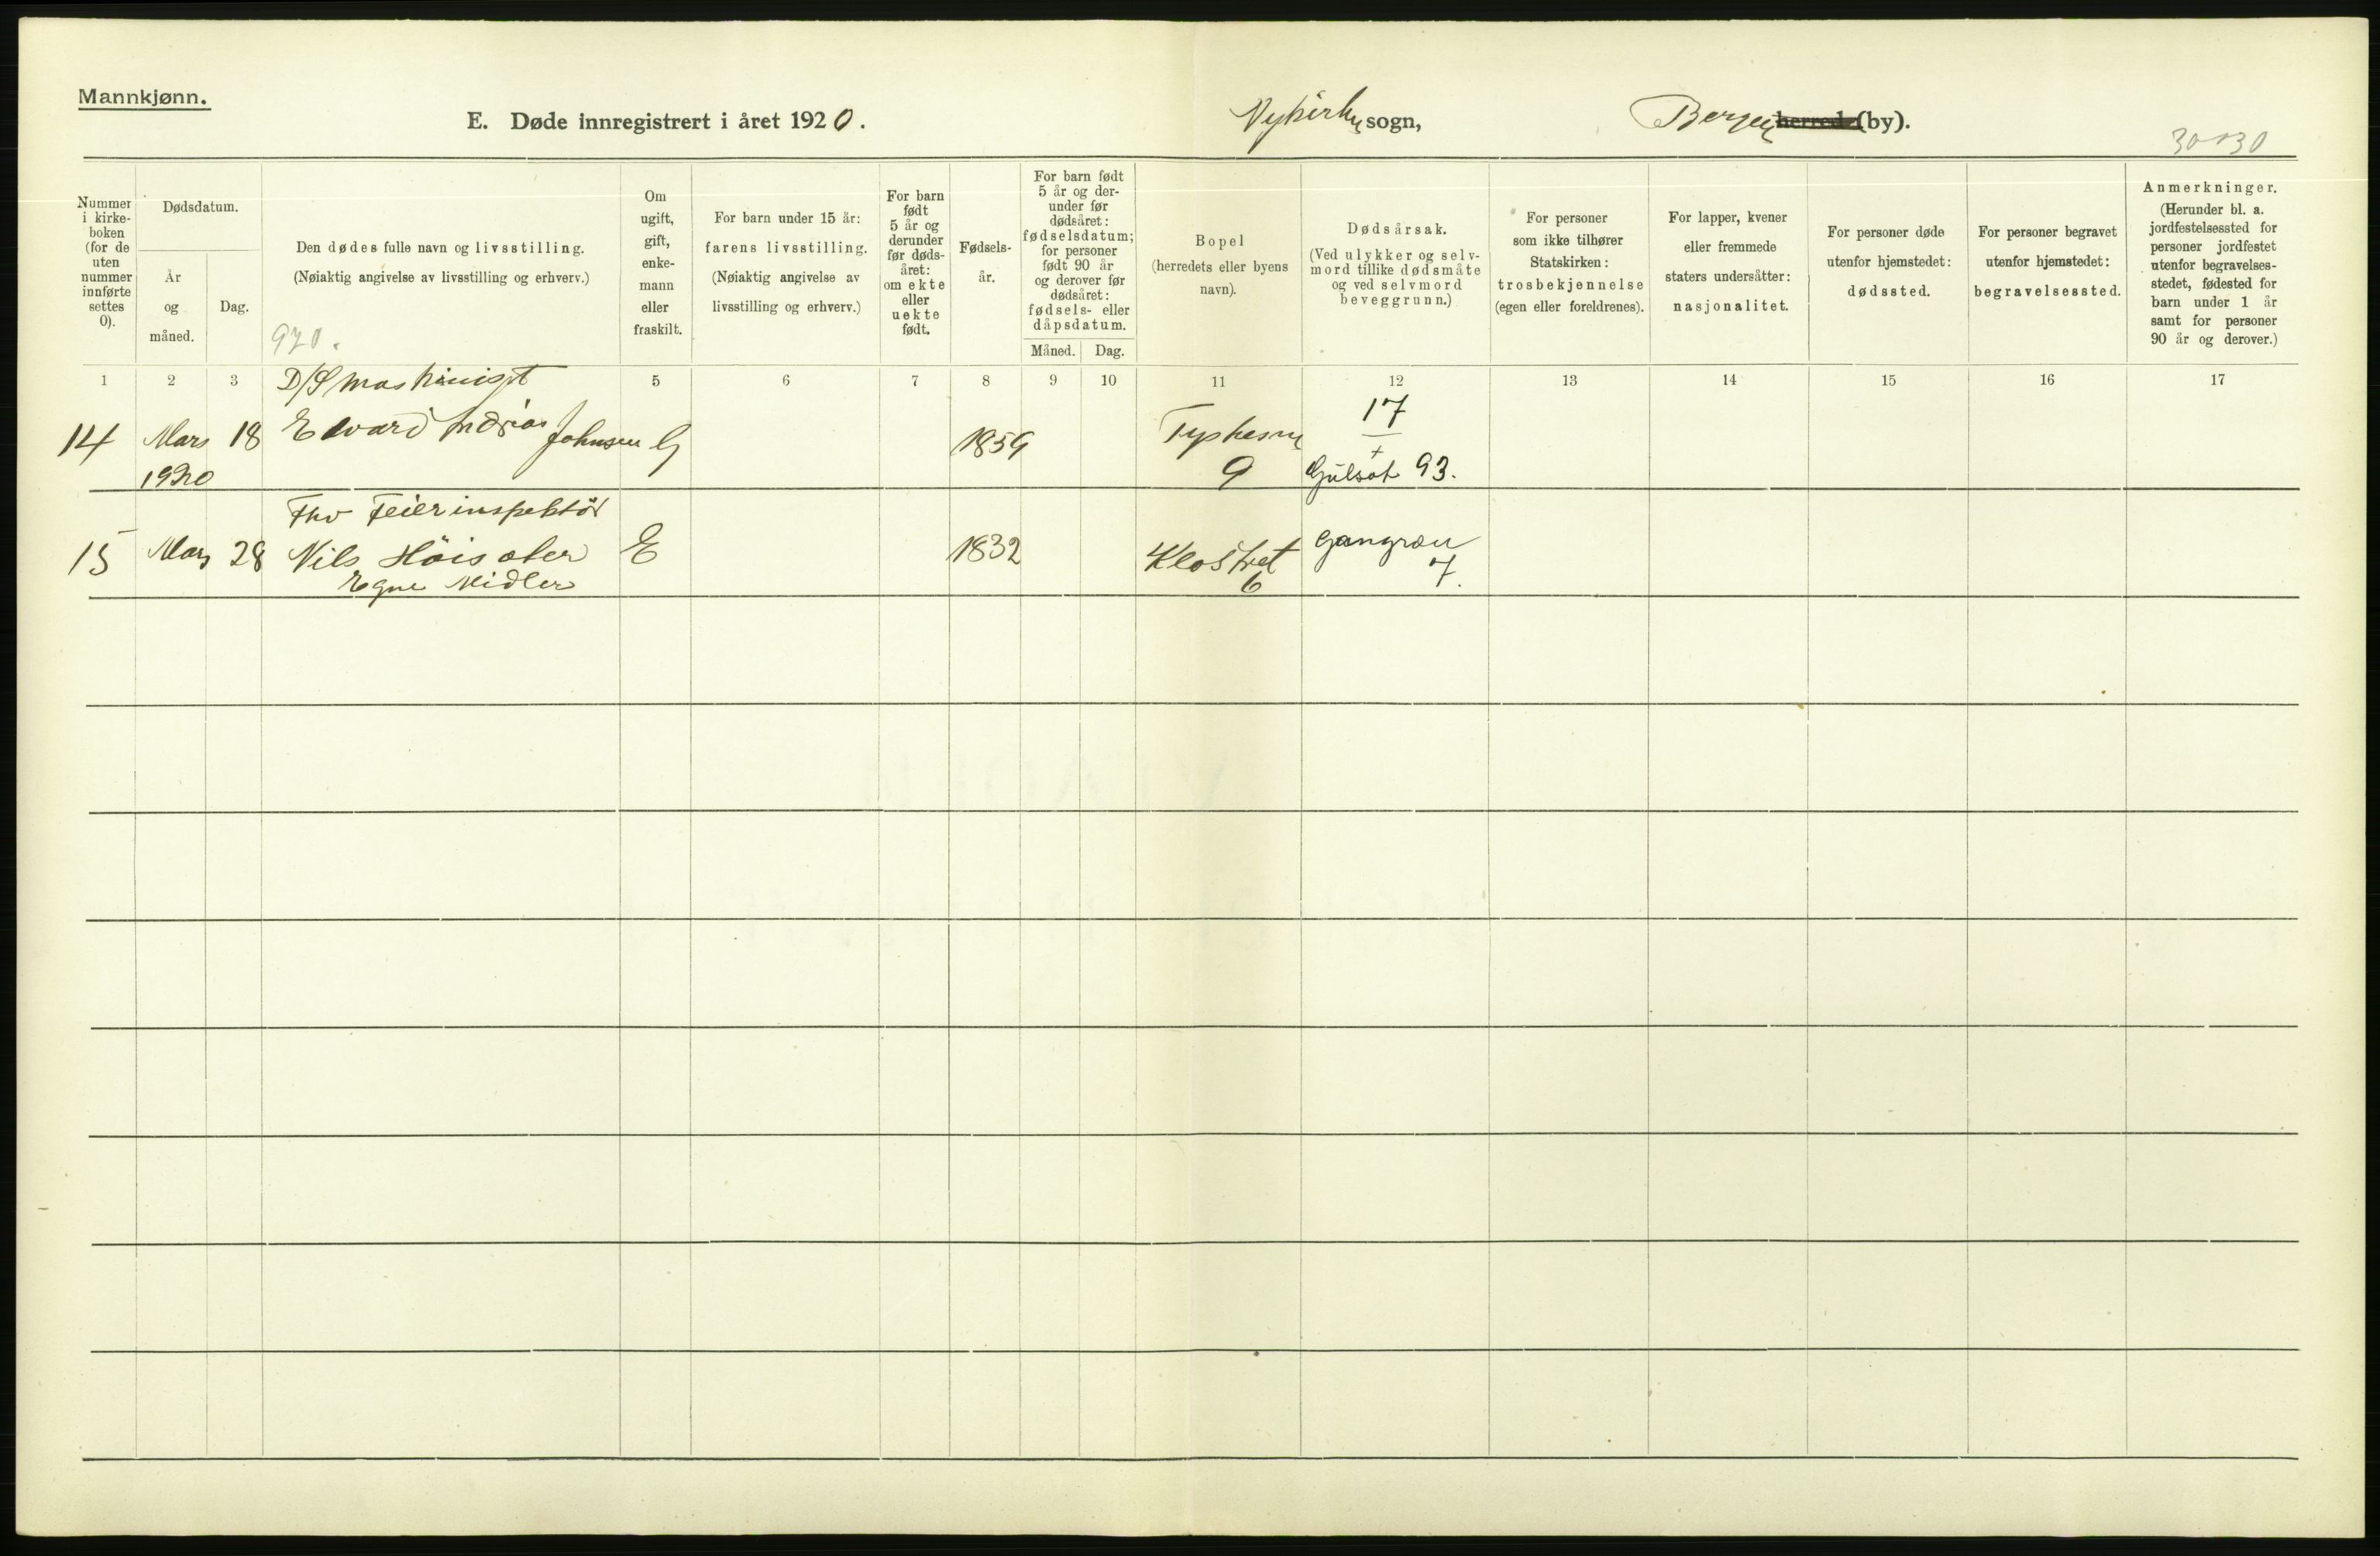 Mannkjønn.
E. Døde innregistrert i året 1920.
Nykirken sogn,
Bergen herred (by).
Nummer i kirke-boken (for de uten nummer innførte settes 0).
Dødsdatum.
År og måned.
Dag.
Den dødes fulle navn og livsstilling.
(Nøiaktig angivelse av livsstilling og erhverv.)
920.
Om ugift, gift, enke-mann eller fraskilt.
For barn under 15 år: farens livsstilling.
(Nøiaktig angivelse av livsstilling og erhverv.)
For barn født 5 år og derunder før døds-året: om ekte eller uekte født.
Fødsels-år.
For barn født 5 år og der-under før dødsåret: fødselsdatum; for personer født 90 år og derover før dødsåret: fødsels- eller dåpsdatum.
Måned. Dag.
Bopel (herredets eller byens navn).
Dødsårsak.
(Ved ulykker og selv-mord tillike dødsmåte og ved selvmord beveggrunn.)
For personer som ikke tilhører Statskirken: trosbekjennelse (egen eller foreldrenes).
For lapper, kvener eller fremmede staters undersåtter: nasjonalitet.
For personer døde utenfor hjemstedet: dødssted.
For personer begravet utenfor hjemstedet: begravelsessted.
Anmerkninger.
(Herunder bl. a. jordfestelsessted for personer jordfestet utenfor begravelses-stedet, fødested for barn under 1 år samt for personer 90 år og derover.)
1 2 3 5 6 7 8 9 10 11 12 13 14 15 16 17
D/S Maskinist
14 Mars 18 Edvard Andreas Johnsen G 1859
1920
17
+
9 Gulsot 93.
Fhv Feierinspektör
15 Mars 28 Nils Höisæter E 1832 Klostret 6 Gangræn 7.
Egne Midler